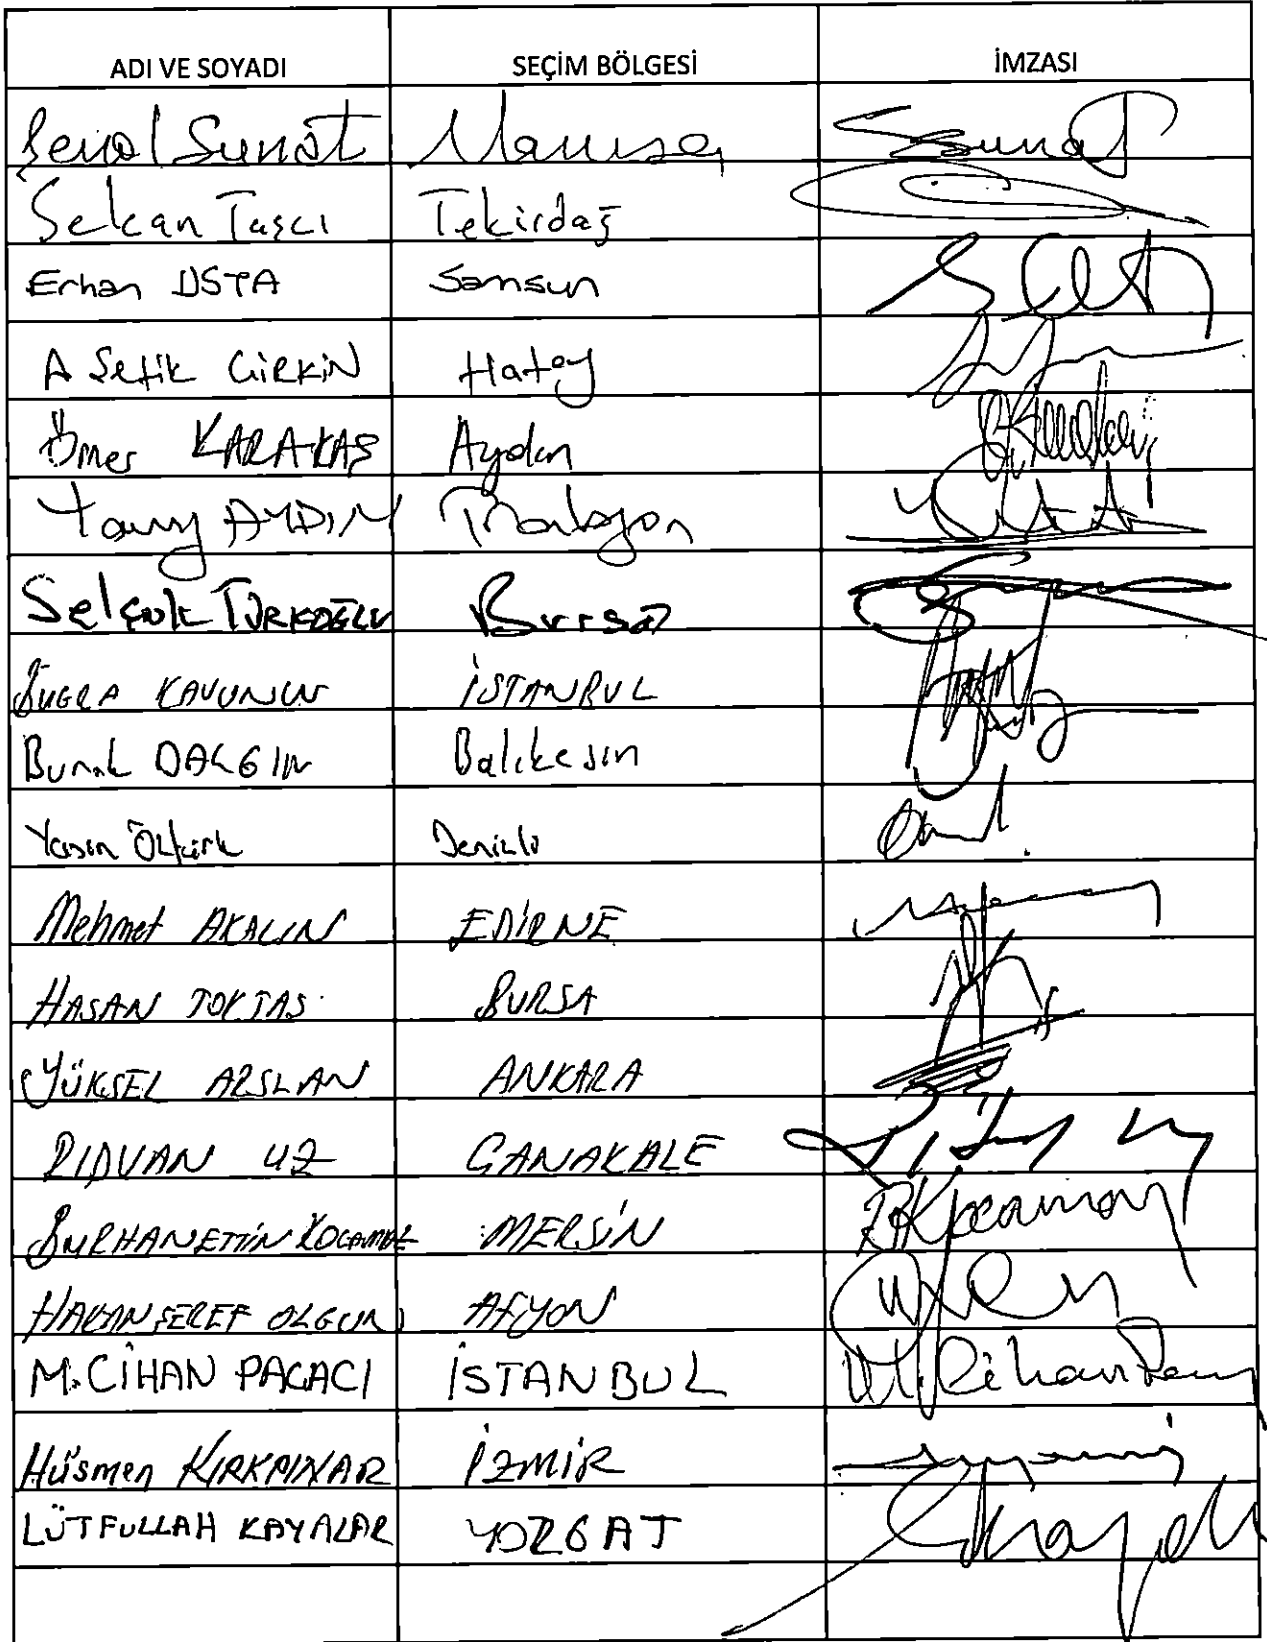 ADI VE SOYADI SEÇİM BÖLGESİ İMZASI
Şenol Sunat Manisa
Selcan Taşcı Tekirdağ
Erhan USTA Samsun
A Şefik ÇİRKİN Hatay
Ömer KARAKAŞ Aydın
Yavuz AYDIN Trabzon
Selçuk TÜRKOĞLU Bursa
BUĞRA KAVUNCU İSTANBUL
Burak DALGIN Balıkesir
Yasin Öztürk Denizli
Mehmet AKALIN EDİRNE
HASAN TOKTAŞ BURSA
YÜKSEL ARSLAN ANKARA
RIDVAN UZ ÇANAKKALE
BURHANETTİN KOCAMAZ MERSİN
HAKAN ŞEREF OLGUN AFYON
M.CİHAN PAÇACI İSTANBUL
Hüsmen KIRKPINAR İZMİR
LÜTFULLAH KAYALAR YOZGAT